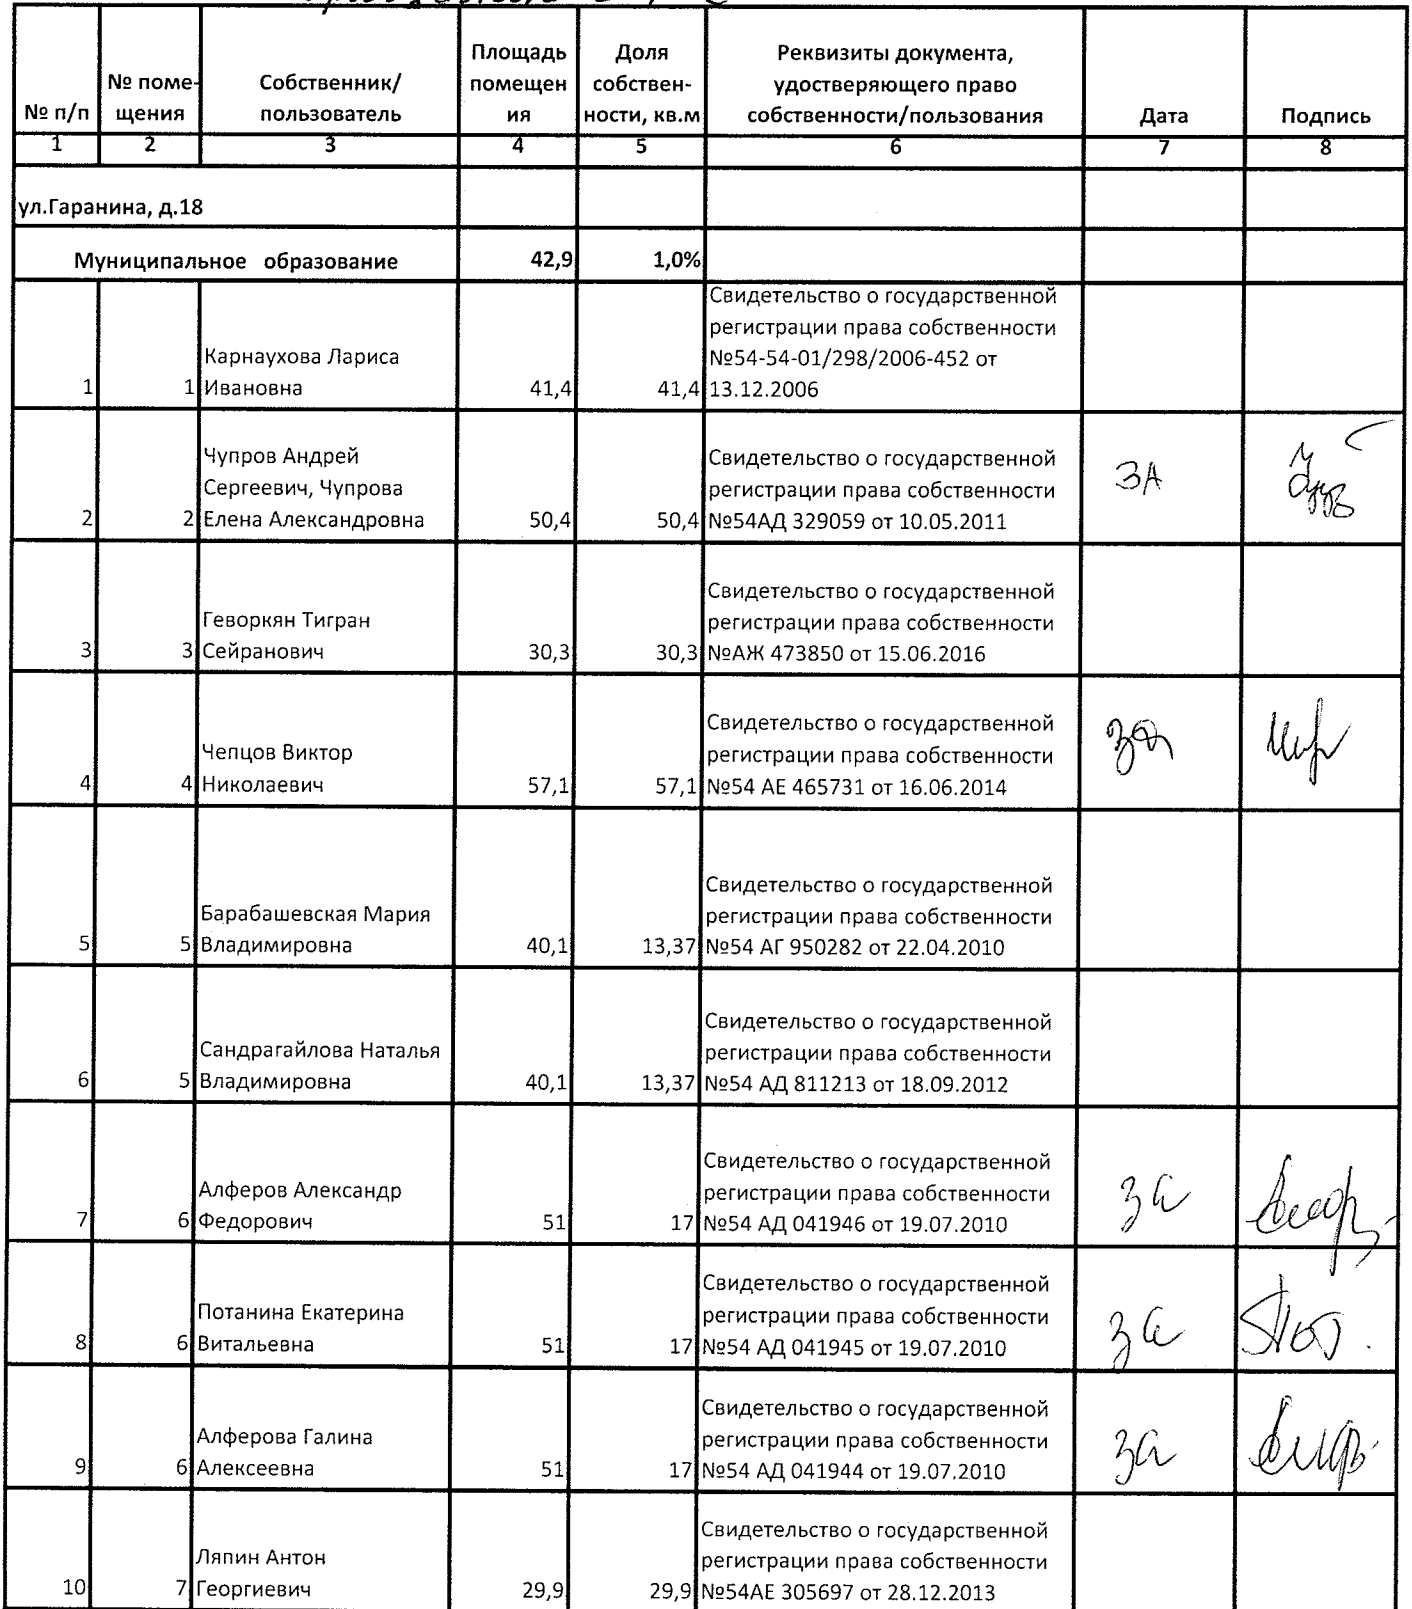 № п/п
№ поме-
щения
Собственник/
пользователь
Площадь
помещен
ия
Доля
собствен-
ности, кв.м
Реквизиты документа,
удостверяющего право
собственности/пользования
Дата
Подпись
1 2 3 4 5 6 7 8
ул.Гаранина, д.18
Муниципальное образование 42,9 1,0%
1 1
Карнаухова Лариса
Ивановна
41,4 41,4
Свидетельство о государственной
регистрации права собственности
№54-54-01/298/2006-452 от
13.12.2006
2 2
Чупров Андрей
Сергеевич, Чупрова
Елена Александровна
50,4 50,4
Свидетельство о государственной
регистрации права собственности
№54АД 329059 от 10.05.2011
ЗА
3 3
Геворкян Тигран
Сейранович
30,3 30,3
Свидетельство о государственной
регистрации права собственности
№АЖ 473850 от 15.06.2016
4 4
Чепцов Виктор
Николаевич
57,1 57,1
Свидетельство о государственной
регистрации права собственности
№54 АЕ 465731 от 16.06.2014
за
5 5
Барабашевская Мария
Владимировна
40,1 13,37
Свидетельство о государственной
регистрации права собственности
№54 АГ 950282 от 22.04.2010
6 5
Сандрагайлова Наталья
Владимировна
40,1 13,37
Свидетельство о государственной
регистрации права собственности
№54 АД 811213 от 18.09.2012
7 6
Алферов Александр
Федорович
51 17
Свидетельство о государственной
регистрации права собственности
№54 АД 041946 от 19.07.2010
за
8 6
Потанина Екатерина
Витальевна
51 17
Свидетельство о государственной
регистрации права собственности
№54 АД 041945 от 19.07.2010
за
9 6
Алферова Галина
Алексеевна
51 17
Свидетельство о государственной
регистрации права собственности
№54 АД 041944 от 19.07.2010
за
10 7
Ляпин Антон
Георгиевич
29,9 29,9
Свидетельство о государственной
регистрации права собственности
№54АЕ 305697 от 28.12.2013